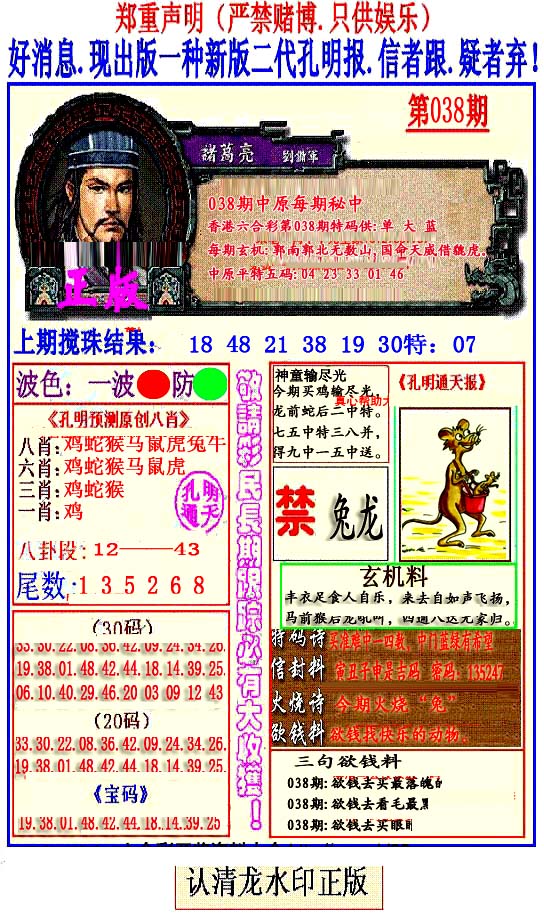 郑重声明（严禁赌博.只供娱乐）
好消息.现出版一种新版二代孔明报.信者跟.疑者弃!
第038期
諸葛亮 劉備軍
038期中原每期秘中
香港六合彩第038期特码供:单 大 蓝
每期玄机:郭南郭北无数山,国命天威借魏虎.
中原平特五码:04 23 33 01 46
正版
上期搅珠结果: 18 48 21 38 19 30特:07
波色:一波 防
《孔明预测原创八肖》
八肖:鸡蛇猴马鼠虎兔牛
六肖:鸡蛇猴马鼠虎
三肖:鸡蛇猴
一肖:鸡
孔明通天
八卦段:12——43
尾数:1 3 5 2 6 8
(30码)
33.30.22.08.36.42.09.24.34.26.
19.38.01.48.42.44.18.14.39.25
06.10.40.29.46.20 03 09 12 43
(20码)
33.30.22.08.36.42.09.24.34.26.
19.38.01.48.42.44.18.14.39.25
《宝码》
19.38.01.48.42.44.18.14.39.25
敬請彩民長期跟踪必有大收獲!
神童输尽光
今期买鸡输尽光,
真心帮助大
龙前蛇后二中特。
七五中特三八并,
得九中一五中送。
《孔明通天报》
禁 兔龙
玄机料
丰衣足食人自乐，来去自如声飞扬，
马前猴后龙吼叫，四通八达无家归。
特码诗 买准难中一四数，中门蓝绿有希望
信封料 寅丑子申是吉码 密码:135247
火烧诗 今期火烧“兔”
欲钱料 欲钱找快乐的动物。
三句欲钱料
038期:欲钱去买最落魄的
038期:欲钱去看毛最黑
038期:欲钱去买眼睛
认清龙水印正版